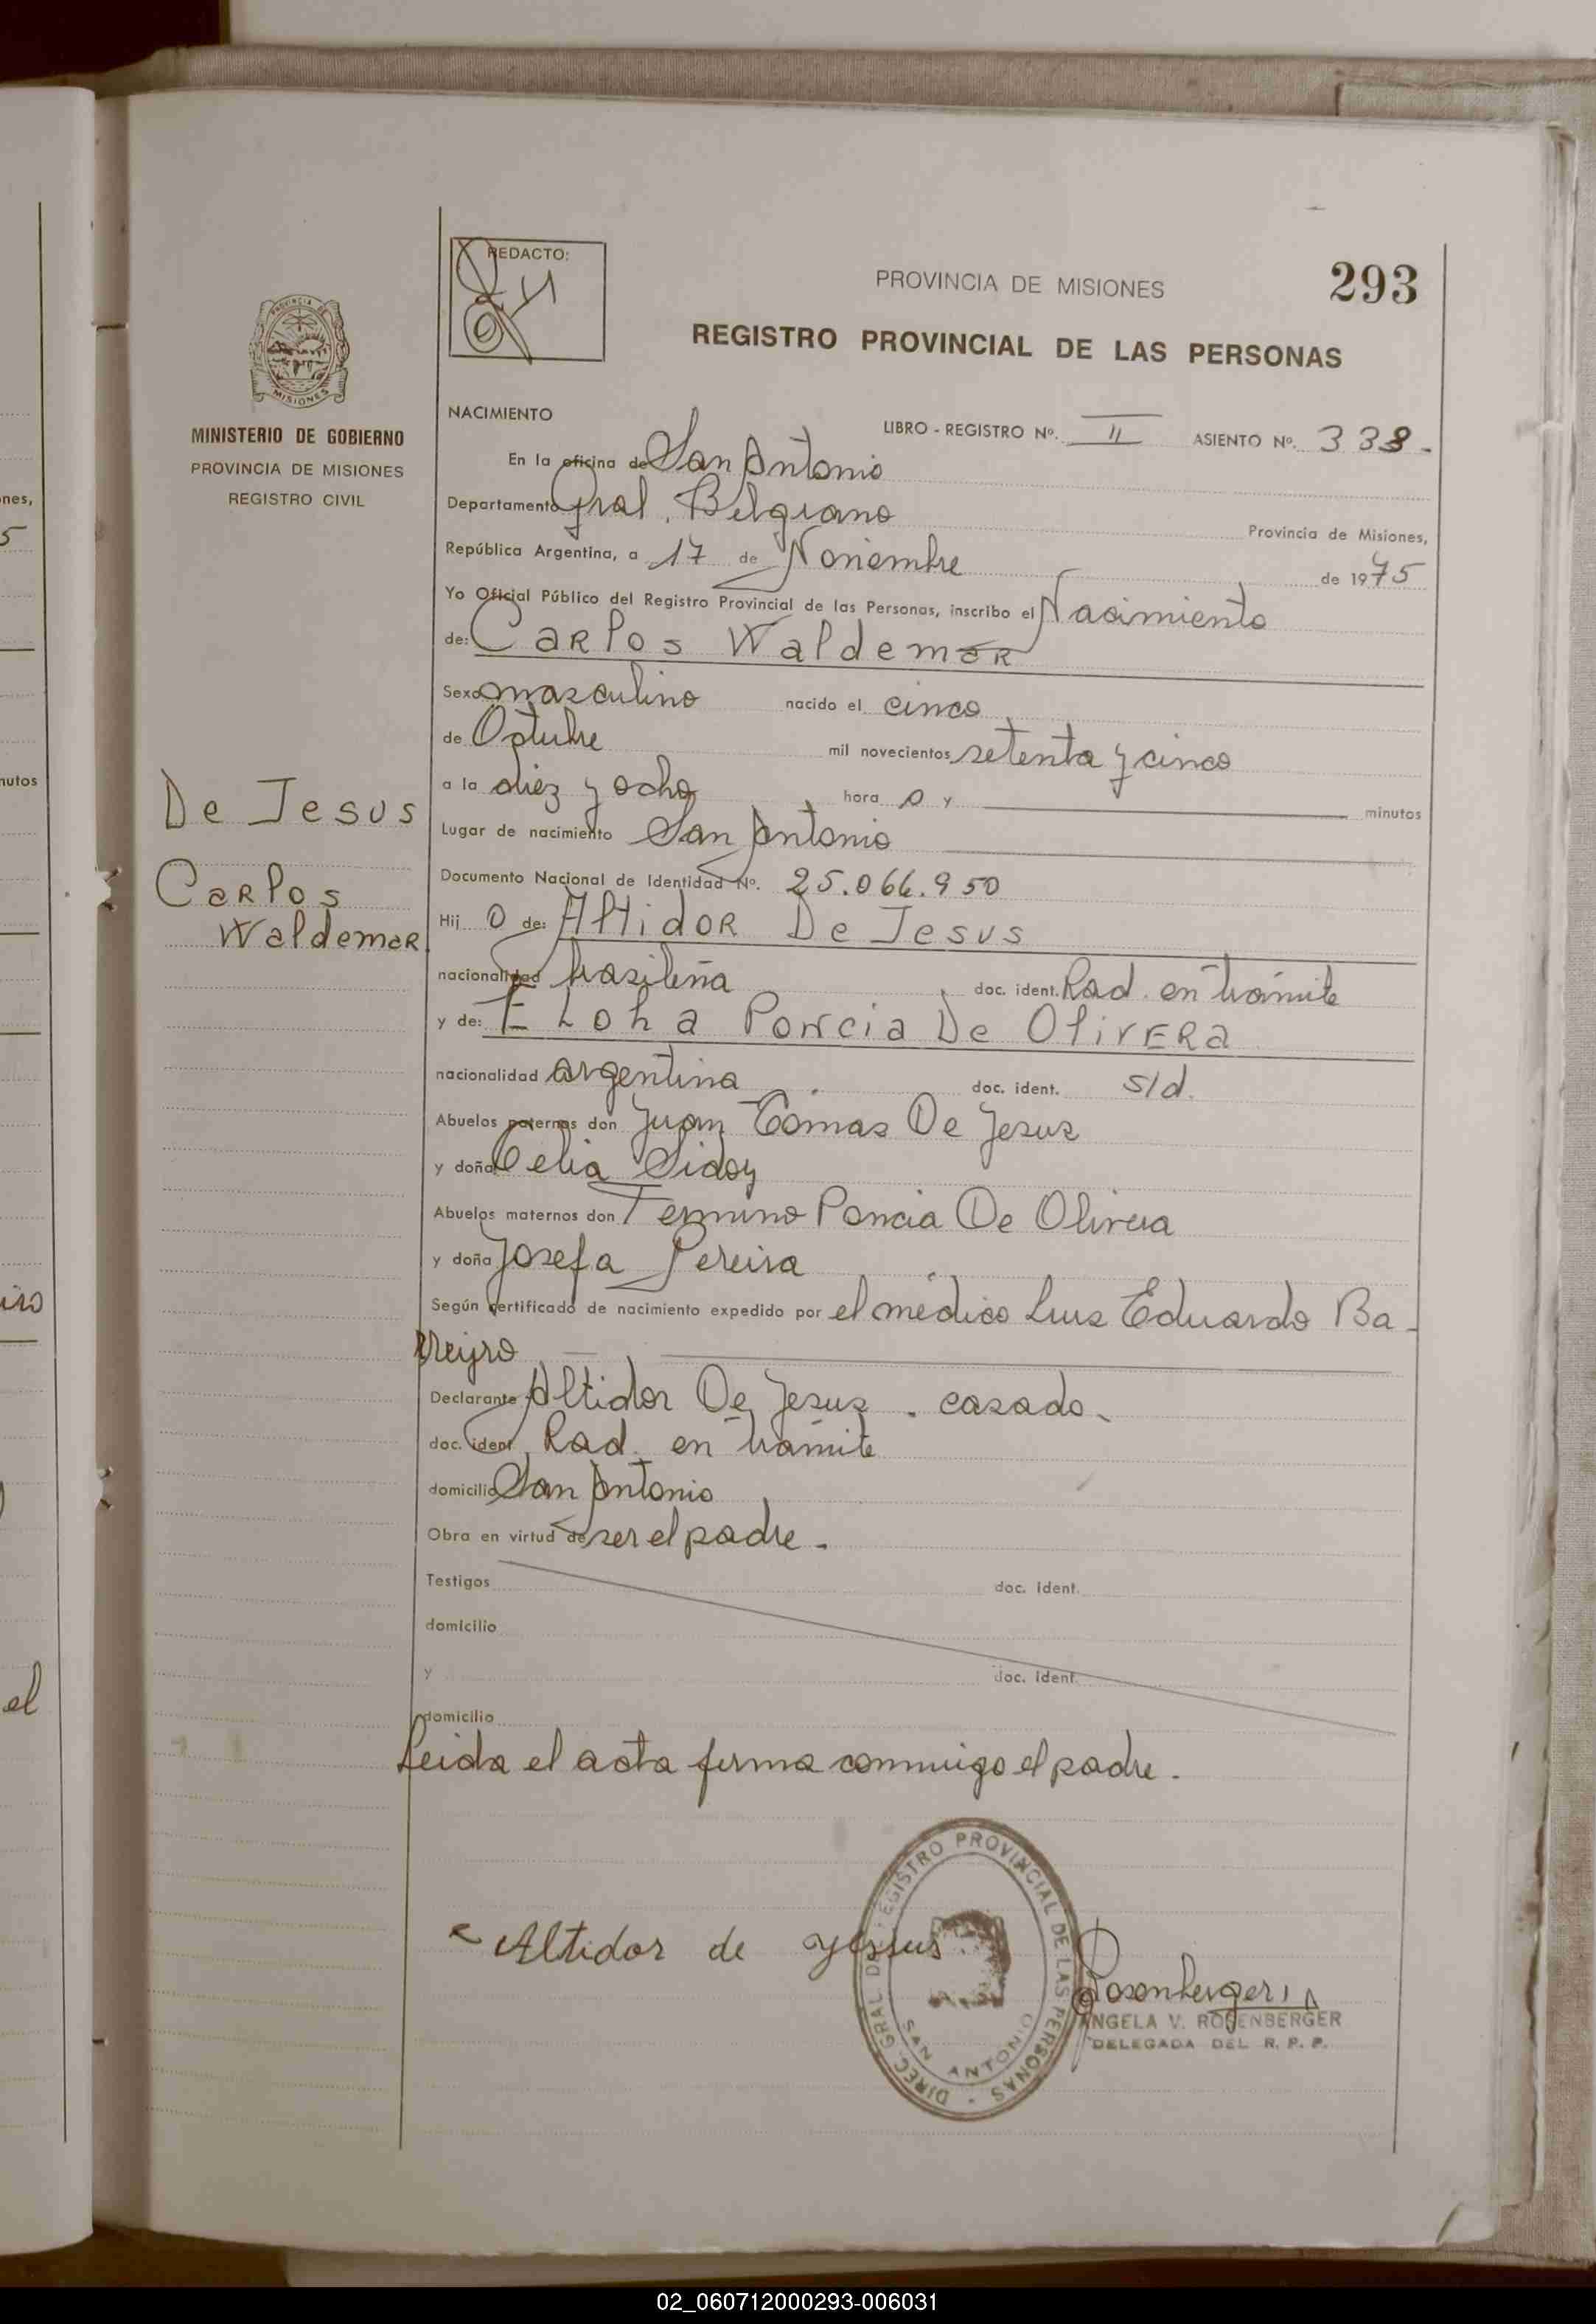 REDACTO:
PROVINCIA DE MISIONES
293
REGISTRO PROVINCIAL DE LAS PERSONAS
PROVINCIA DE
MISIONES
MINISTERIO DE GOBIERNO
PROVINCIA DE MISIONES
REGISTRO CIVIL
NACIMIENTO
LIBRO - REGISTRO Nº. II ASIENTO Nº. 338-
En la oficina de San Antonio
Departamento Gral. Belgrano Provincia de Misiones,
República Argentina, a 17 de Noviembre de 1975
Yo Oficial Público del Registro Provincial de las Personas, inscribo el Nacimiento
de: Carlos Waldemar
Sexo masculino nacido el cinco
de Octubre mil novecientos setenta y cinco
a la diez y ocho hora o y minutos
De Jesus
Carlos
Waldemar
Lugar de nacimiento San Antonio
Documento Nacional de Identidad Nº. 25.066.950
Hij o de: Altidor De Jesus
nacionalidad brasileña doc. ident. Rad. en trámite
y de: Eloha Poncia De Olivera
nacionalidad argentina doc. ident. s/d.
Abuelos paternos don Juan Tomas De Jesus
y doña Celia Sidoy
Abuelos maternos don Poncia De Olivera
y doña Josefa Pereira
Según certificado de nacimiento expedido por el médico Luis Eduardo Ba-
rreyro
Declarante Altidor De Jesus - casado-
doc. ident. Rad. en trámite
domicilio San Antonio
Obra en virtud de ser el padre -
Testigos doc. ident.
domicilio
y doc. ident.
domicilio
Leida el acta firma conmigo el padre.
Altidor de yessus
DIREC. GRAL DEL REGISTRO PROVINCIAL DE LAS PERSONAS -
SAN ANTONIO
Rosenberger
ANGELA V. ROSENBERGER
DELEGADA DEL R. P. P.
nes,
5
nutos
el
02_060712000293-006031